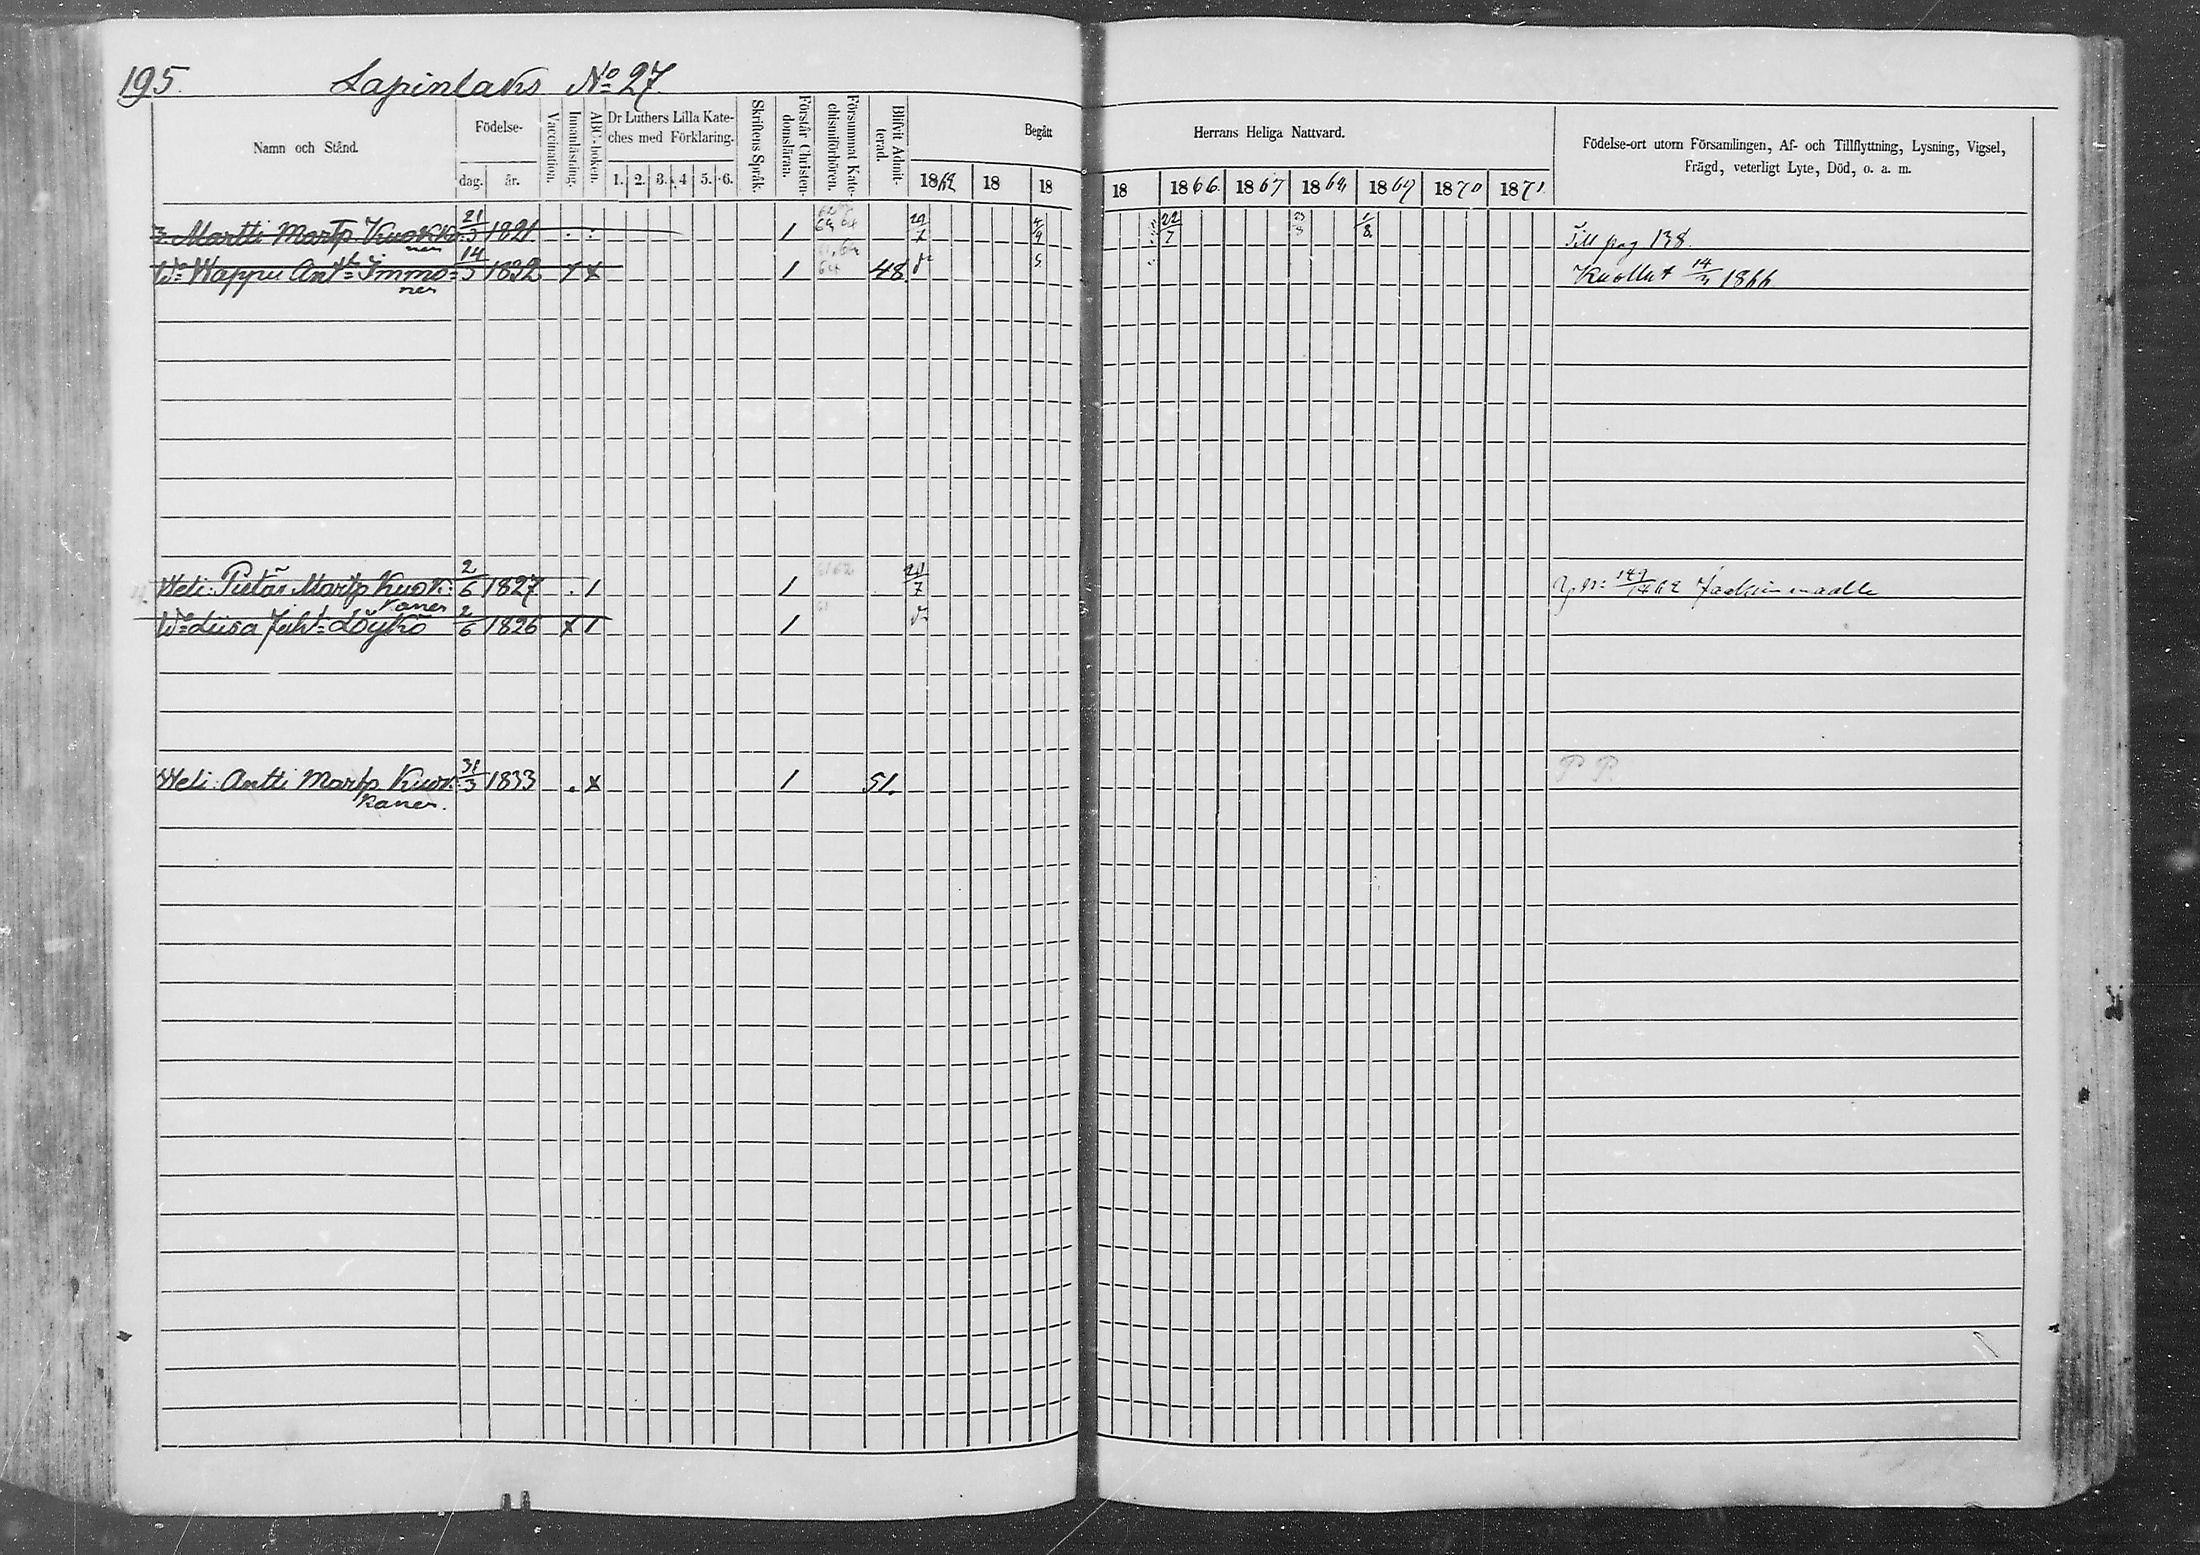 195. Lapinlaks No 27.
Namn och Stånd.
Födelse-
dag. år.
Vaccination.
Innanläsning.
ABC-boken.
Dr Luthers Lilla Kate-
ches med Förklaring.
1. 2. 3. 4 5. 6.
Skriftens Språk.
Förstår Christen-
domsläran.
Försummat Kate-
chismiförhören.
Blifvit Admit-
terad.
Begått
18 18
18
Herrans Heliga Nattvard.
18 1866. 1867 1869 1870 1871.
Födelse-ort utom Församlingen, Af- och Tillflyttning, Lysning, Vigsel,
Frägd, veterligt Lyte, Död, o. a. m.
Martti Martp Kuokka 21 1821. 1 22/7 1/8 Till pag 138.
nen
Wo Wappu Antt Immo= 14 1822 1 48. Kuollut 14 1866
nen
Weli: Pietari Martp Kuok: 2/6 1827 . 1 1
kanen
Wo Liisa Juht: Löykö 2/6 1826 x 1 1
Weli: Antti Martp Kuok: 31/3 1833 . x 1 51. P P.
kanen.